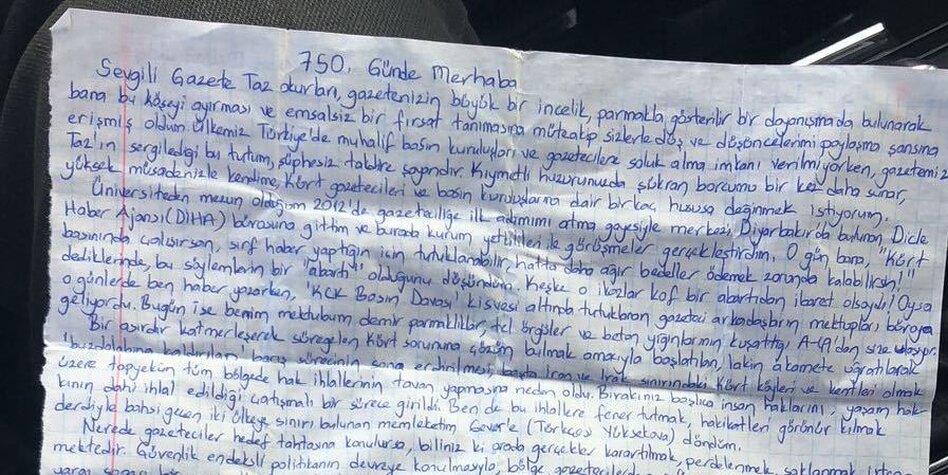 750. Günde Merhaba
Sevgili Gazete Taz okurları, gazetenizin büyük bir incelik, parmakla gösterilir bir dayanışmada bulunarak
bana bu köşeyi ayırması ve emsalsiz bir fırsat tanımasına müteakip sizlerle düş ve düşüncelerimi paylaşma şansına
erişmiş oldum. Ülkemiz Türkiye'de muhalif basın kuruluşları ve gazetecilere soluk alma imkanı verilmiyorken, gazetemiz
Taz'ın sergilediği bu tutum, şüphesiz takdire şayandır. Kıymetli huzurunuzda şükran borcumu bir kez daha sunar,
yüksek müsadenizle kendime, Kürt gazetecileri ve basın kuruluşlarına dair birkaç hususa değinmek istiyorum.
Üniversiteden mezun olduğum 2012'de gazeteciliğe ilk adımımı atma gayesiyle merkezi Diyarbakır'da bulunan, Dicle
Haber Ajansı (DİHA) bürosuna gittim ve burada kurum yetkilileri ile görüşmeler gerçekleştirdim. O gün bana, "Kürt
basınında çalışırsan, sırf haber yaptığın için tutuklanabilir, hatta daha ağır bedeller ödemek zorunda kalabilirsin!"
dediklerinde, bu söylemlerin bir "abartı" olduğunu düşündüm. Keşke o ikazlar kof bir abartıdan ibaret olsaydı! Oysa
o günlerde ben haber yazarken, 'KCK Basın Davası' kisvesi altında tutuklanan gazeteci arkadaşların mektupları büroya
geliyordu. Bugün ise benim mektubum demir parmaklıklar, tel örgüler ve beton yığınlarının kuşattığı A-49'dan size ulaşıyor.
Bir asırdır katmerleşerek süregelen Kürt sorununa çözüm bulmak amacıyla başlatılan, lakin akamete uğratılarak
'buzdolabına kaldırılan' barış sürecinin sona erdirilmesi, başta İran ve Irak sınırındaki Kürt köyleri ve kentleri olmak
üzere topyekün tüm bölgede hak ihlallerinin tavan yapmasına neden oldu. Bırakınız başlıca insan haklarını, yaşam hak-
kının dahi ihlal edildiği çatışmalı bir sürece girildi. Ben de bu ihlallere fener tutmak, hakikatleri görünür kılmak
derdiyle bahsi geçen iki ülkeye sınırı bulunan memleketim Gever'e (Türkçesi Yüksekova) döndüm.
Nerede gazeteciler hedef tahtasına konulursa, biliniz ki orada gerçekler karartılmak, perdelenmek, saklanmak isten-
mektedir. Güvenlik endeksli politikanın devreye konulmasıyla, bölge gazetecilerde